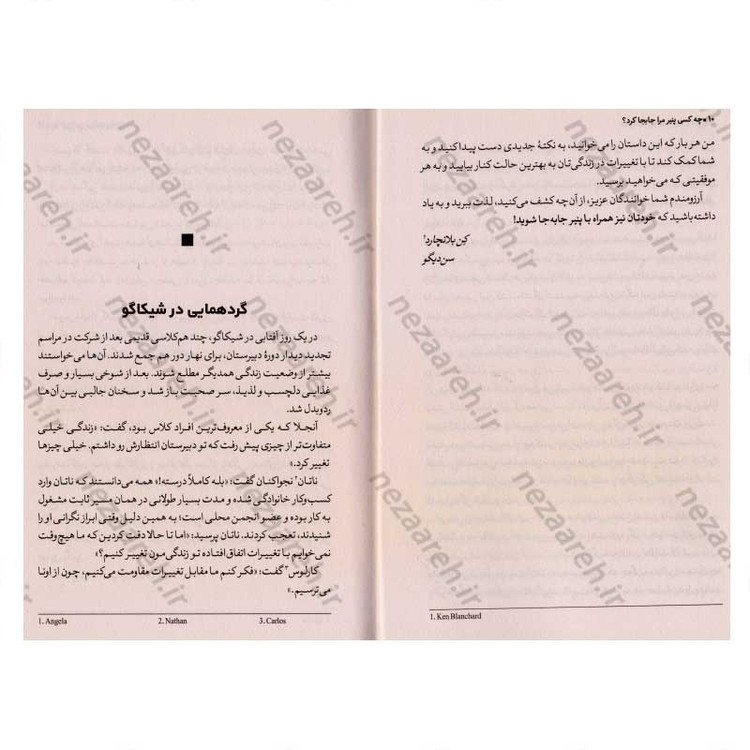 ۱۰ • چه کسی پنیر مرا جابجا کرد؟
من هر بار که این داستان را می‌خوانید، به نکتهٔ جدیدی دست پیدا کنید و به
شما کمک کند تا با تغییرات در زندگی‌تان به بهترین حالت کنار بیایید و به هر
موفقیتی که می‌خواهید برسید.
آرزومندم شما خوانندگان عزیز، از آن‌چه کشف می‌کنید، لذت ببرید و به یاد
داشته باشید که خودتان نیز همراه با پنیر جابه‌جا شوید!
کِن بلانچارد¹
سن‌دیگو
1. Ken Blanchard
گردهمایی در شیکاگو
در یک روز آفتابی در شیکاگو، چند هم‌کلاسی قدیمی بعد از شرکت در مراسم
تجدید دیدار دورهٔ دبیرستان، برای نهار دور هم جمع شدند. آن‌ها می‌خواستند
بیشتر از وضعیت زندگی همدیگر مطلع شوند. بعد از شوخی بسیار و صرف
غذایی دلچسب و لذیذ، سر صحبت باز شد و سخنان جالبی بین آن‌ها
ردوبدل شد.
آنجلا که یکی از معروف‌ترین افراد کلاس بود، گفت: «زندگی خیلی
متفاوت‌تر از چیزی پیش رفت که تو دبیرستان انتظارش رو داشتم. خیلی چیزها
تغییر کرد.»
ناتان² نجواکنان گفت: «بله کاملاً درسته!» همه می‌دانستند که ناتان وارد
کسب‌وکار خانوادگی شده و مدت بسیار طولانی در همان مسیر ثابت مشغول
به کار بوده و عضو انجمن محلی است؛ به همین دلیل وقتی ابراز نگرانی او را
شنیدند، تعجب کردند. ناتان پرسید: «اما تا حالا دقت کردین که ما هیچ‌وقت
نمی‌خوایم با تغییرات اتفاق افتاده تو زندگی‌مون تغییر کنیم؟»
کارلوس³ گفت: «فکر کنم ما مقابل تغییرات مقاومت می‌کنیم، چون از اونا
می‌ترسیم.»
1. Angela 2. Nathan 3. Carlos
nezaareh.ir